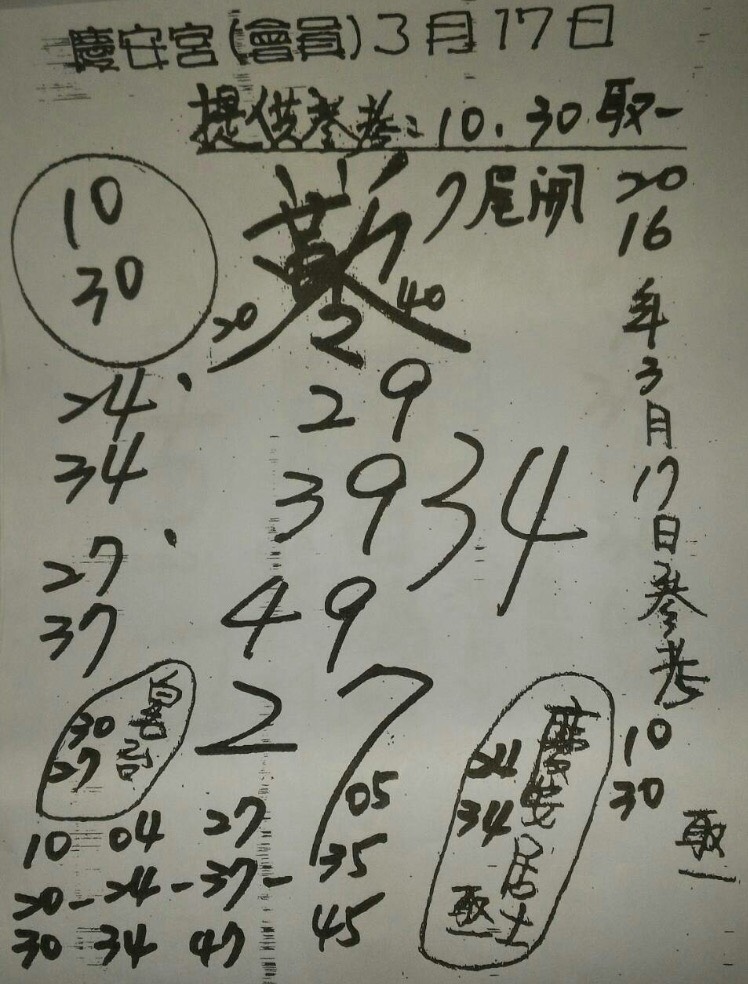 慶安宮(會員)3月17日
提供參考:10.30取一
7尾開
10
30
20 2 40
24
34
27
37
29
39
49
34
27
2016年3月17日參考
10
30
取一
30
27
慶安居士
24
34
取一
10 04 27 05
20-24-37-35
30 34 47 45